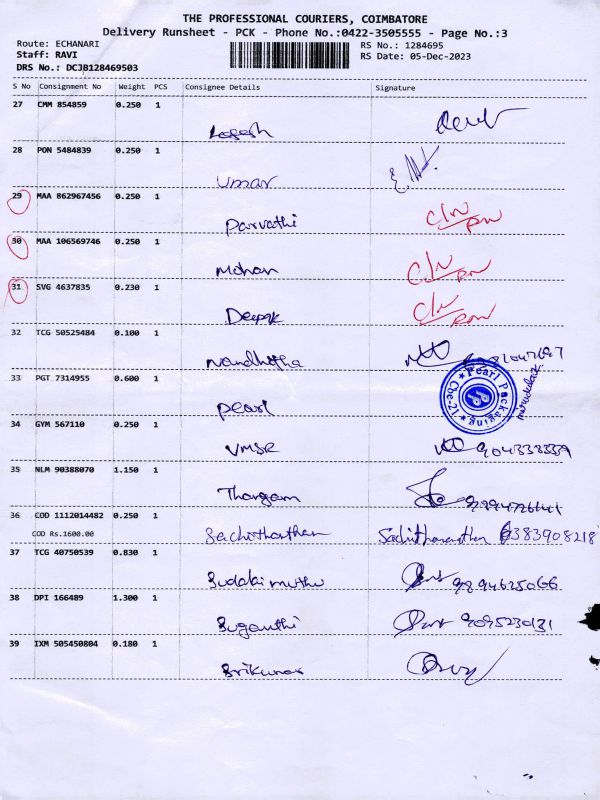 THE PROFESSIONAL COURIERS, COIMBATORE
Delivery Runsheet - PCK - Phone No.:0422-3505555 - Page No.:3
Route: ECHANARI RS No.: 1284695
Staff: RAVI RS Date: 05-Dec-2023
DRS No.: DCJB128469503
S No Consignment No Weight PCS Consignee Details Signature
27 CMM 854859 0.250 1
Logesh
28 PON 5484839 0.250 1
Umar
29 MAA 862967456 0.250 1
Parvathi
30 MAA 106569746 0.250 1
Mohan
31 SVG 4637835 0.230 1
Deepak
32 TCG 50525484 0.100 1
Nandhitha
33 PGT 7314955 0.600 1
Pearl Packaging Cbe-21.
Pearl
34 GYM 567110 0.250 1
VMSR
35 NLM 90388070 1.150 1
Thangam
36 COD 1112014482 0.250 1
COD Rs.1600.00 Sachithanthan Sachithananthan 6383908218
37 TCG 40750539 0.830 1
Sudalaimuthu 9894625066
38 DPI 166489 1.300 1
Suganthi 9095230131
39 IXM 505450804 0.180 1
Srikumar